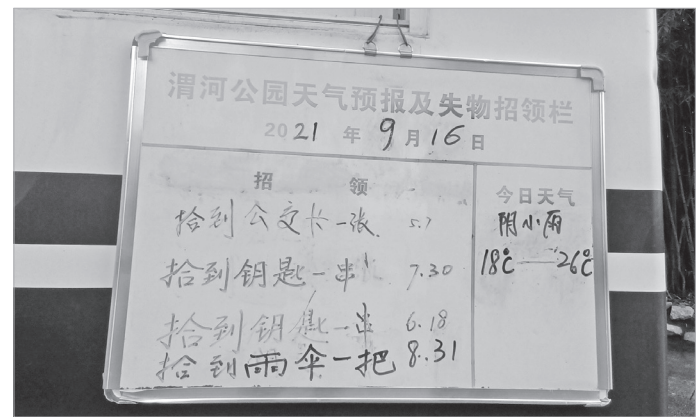 渭河公园天气预报及失物招领栏
2021 年 9 月 16 日
招 领
拾到公交卡一张 5.7
拾到钥匙一串 7.30
拾到钥匙一串 6.18
拾到雨伞一把 8.31
今日天气
阴小雨
18℃—26℃